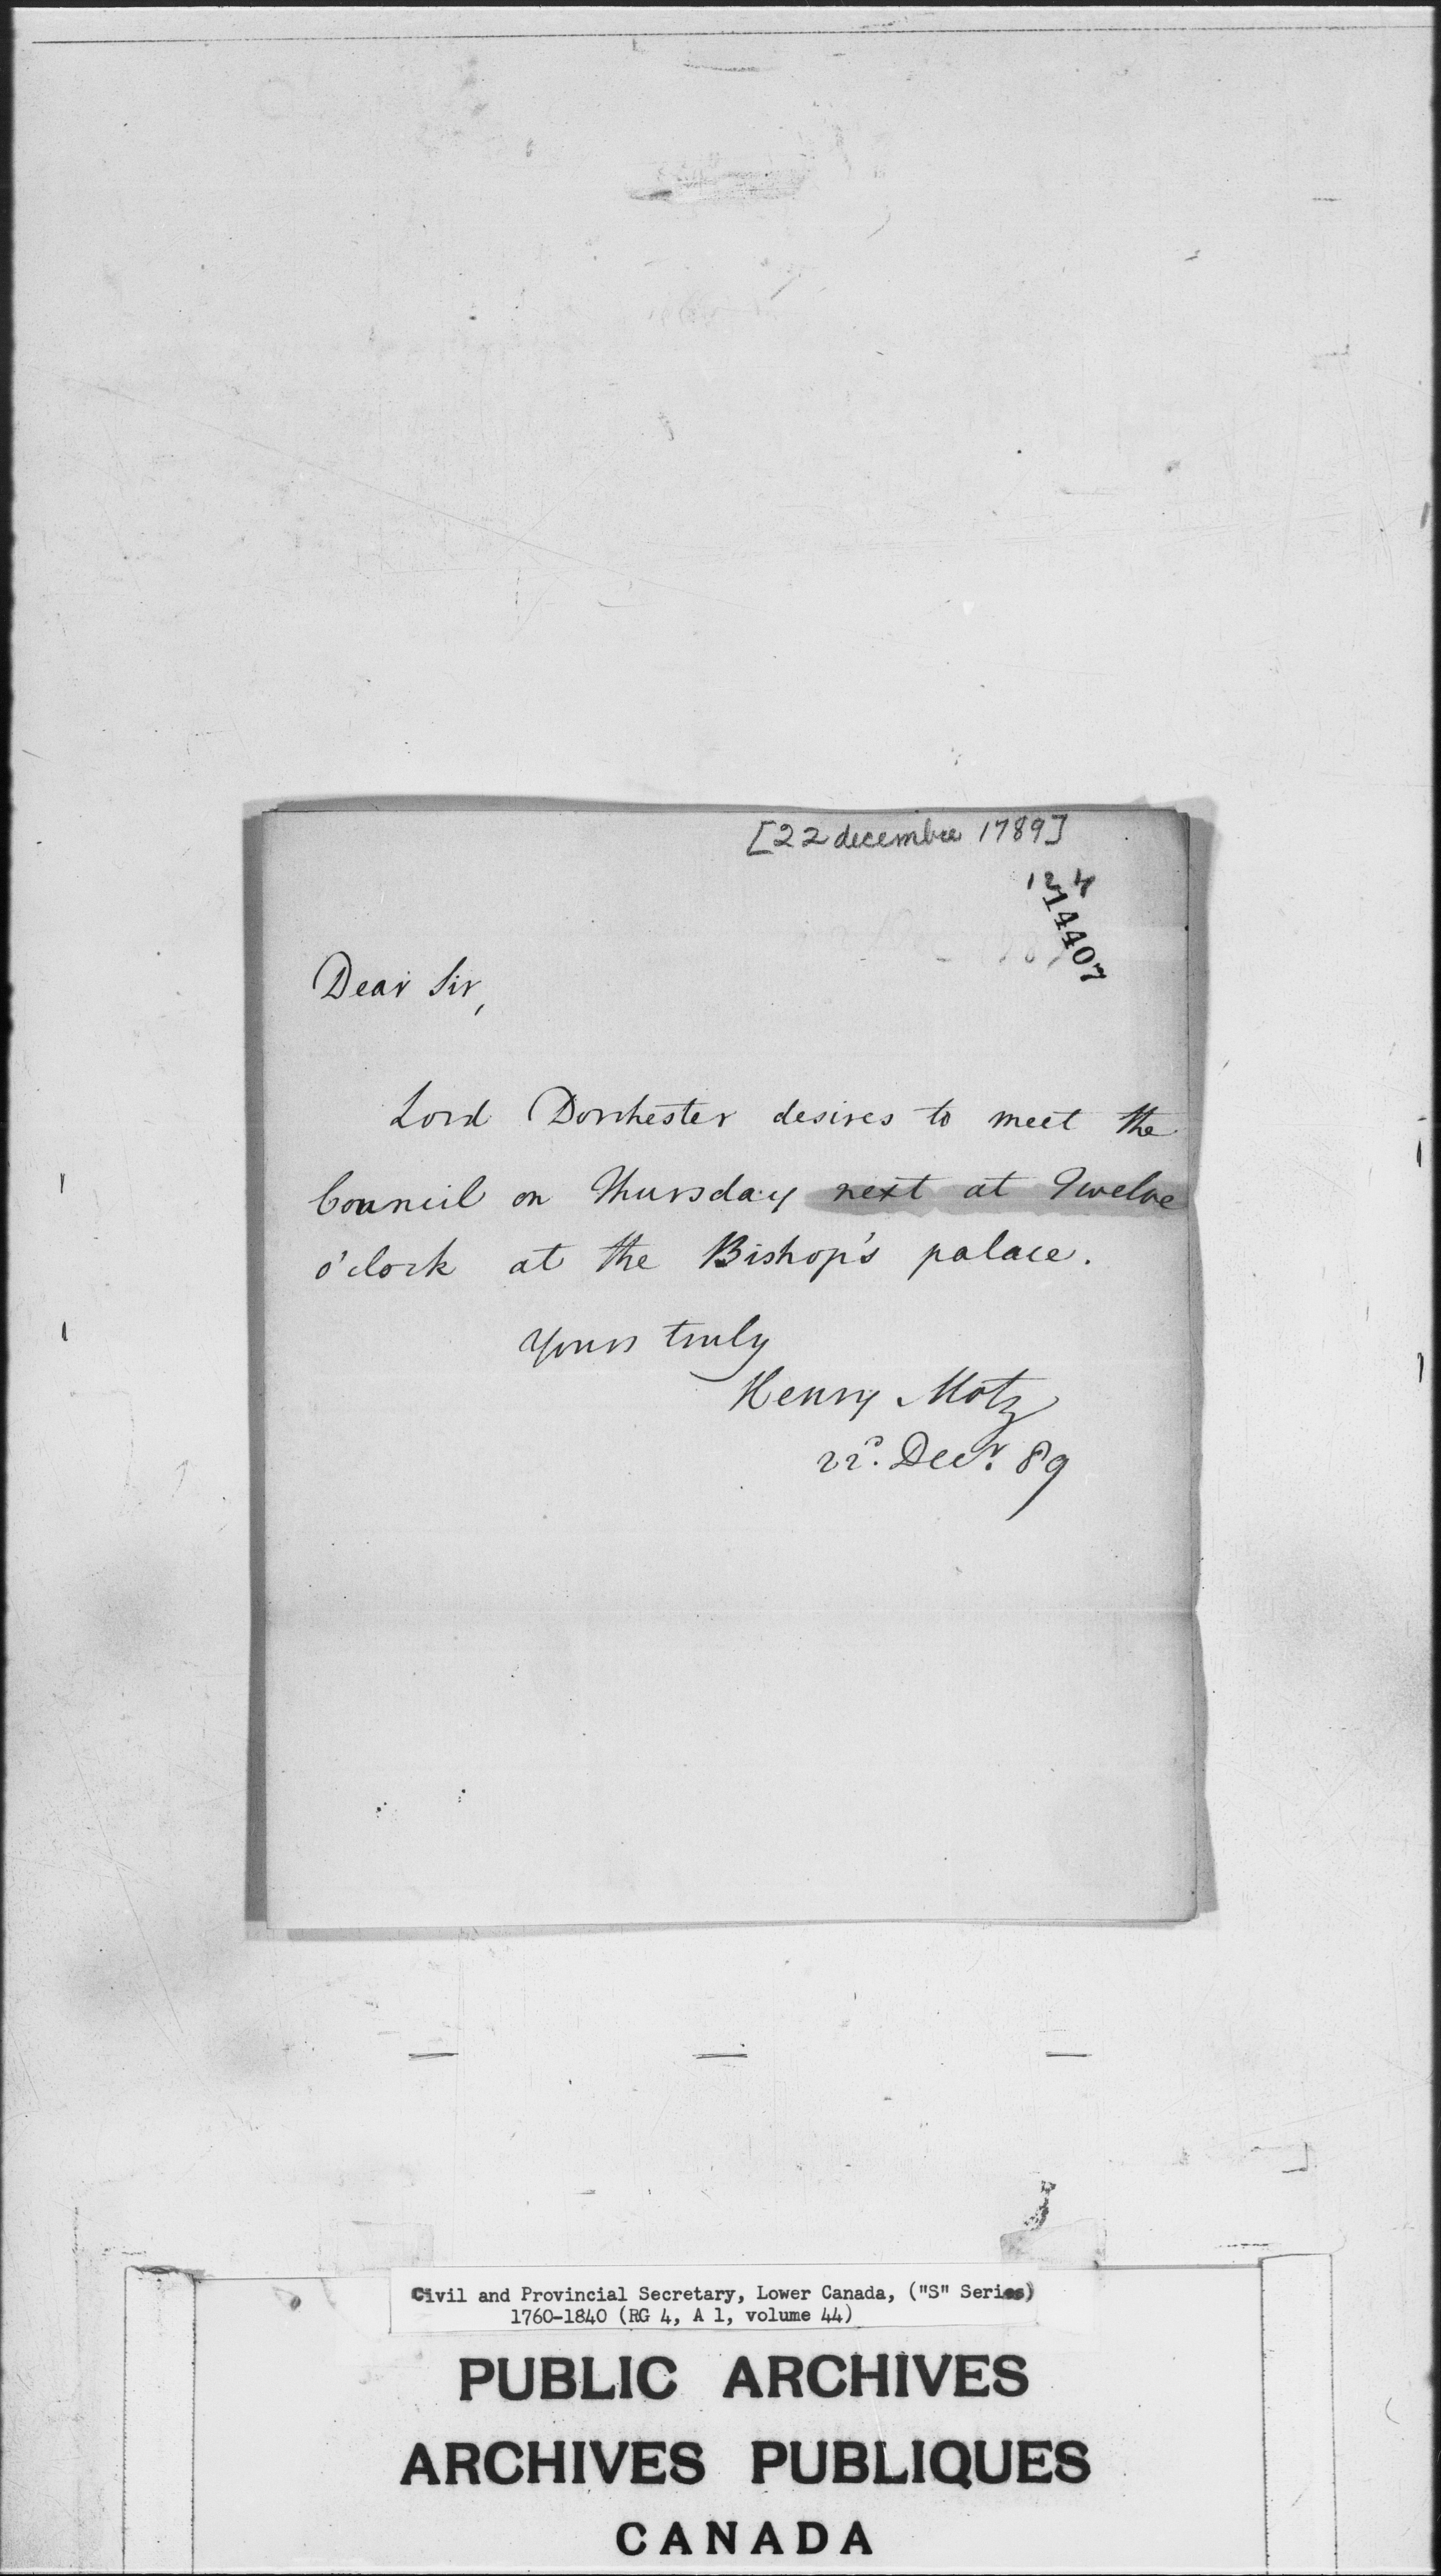 [22 decembre 1789]
124
14407
Dear Sir,
Lord Dorchester desires to meet the
Council on Thursday next at Twelve
o'clock at the Bishop's palace.
Yours truly
Henry Motz
22d. Decr. 89
Civil and Provincial Secretary, Lower Canada, ("S" Series)
1760-1840 (RG 4, A 1, volume 44)
PUBLIC ARCHIVES
ARCHIVES PUBLIQUES
CANADA